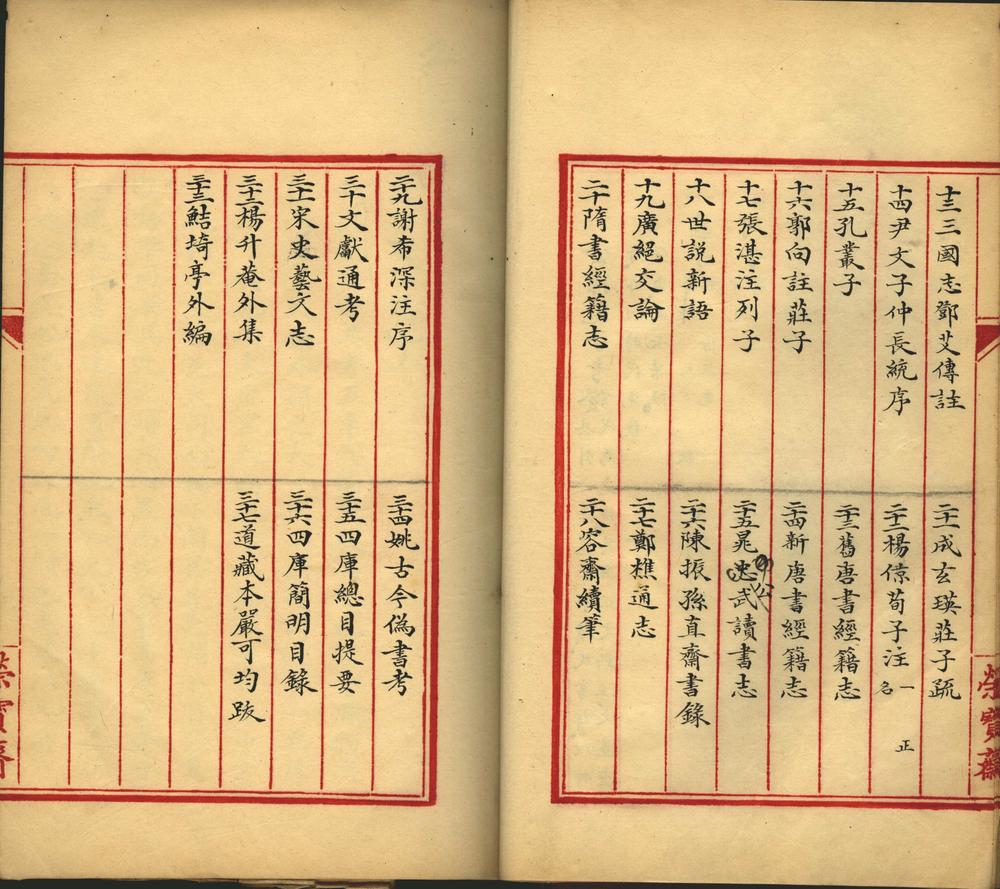 十三三國志鄧艾傳註
十四尹文子仲長統序
十五孔叢子
十六郭向註莊子
十七張湛注列子
十八世說新語
十九廣絕交論
二十隋書經籍志
二十一成玄瑛莊子疏
二十二楊倞荀子注 一名 正
二十三舊唐書經籍志
二十四新唐書經籍志
二十五晁忠武讀書志
二十六陳振孫直齋書錄
二十七鄭樵通志
二十八容齋續筆
榮寶齋
二十九謝希深注序
三十文獻通考
三十一宋史藝文志
三十二楊升菴外集
三十三鮚埼亭外編
三十四姚古今偽書考
三十五四庫總目提要
三十六四庫簡明目錄
三十七道藏本嚴可均跋
榮寶齋